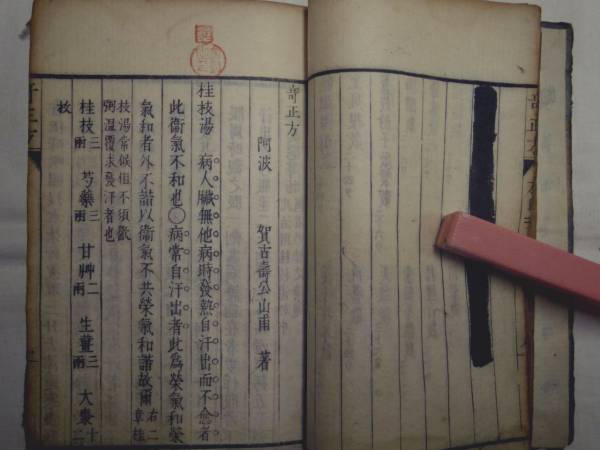 奇正方
阿波 賀古壽公山甫 著
桂枝湯 病人臟無他病時發熱自汗出而不愈者
此衞氣不和也○病常自汗出者此為榮氣和榮
氣和者外不諧以衞氣不共榮氣和諧故爾 右二章桂
枝湯常候但不須歠
粥温覆求發汗者也
桂枝三兩 芍藥三兩 甘艸二兩 生薑三兩 大棗十二
枚
奇正方